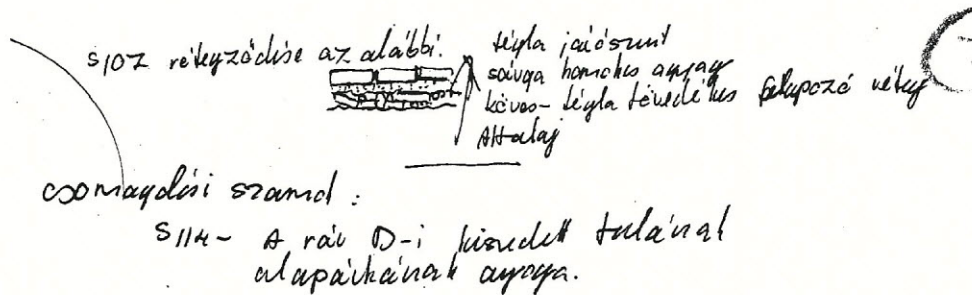 S107 rétegződése az alábbi:
tégla járószint
sárga homokos anyag
köves-tégla töredékes alapozó réteg
Altalaj
csomagolási szand:
S114- A ráv D-i kiszedett falának
alapárkának anyaga.